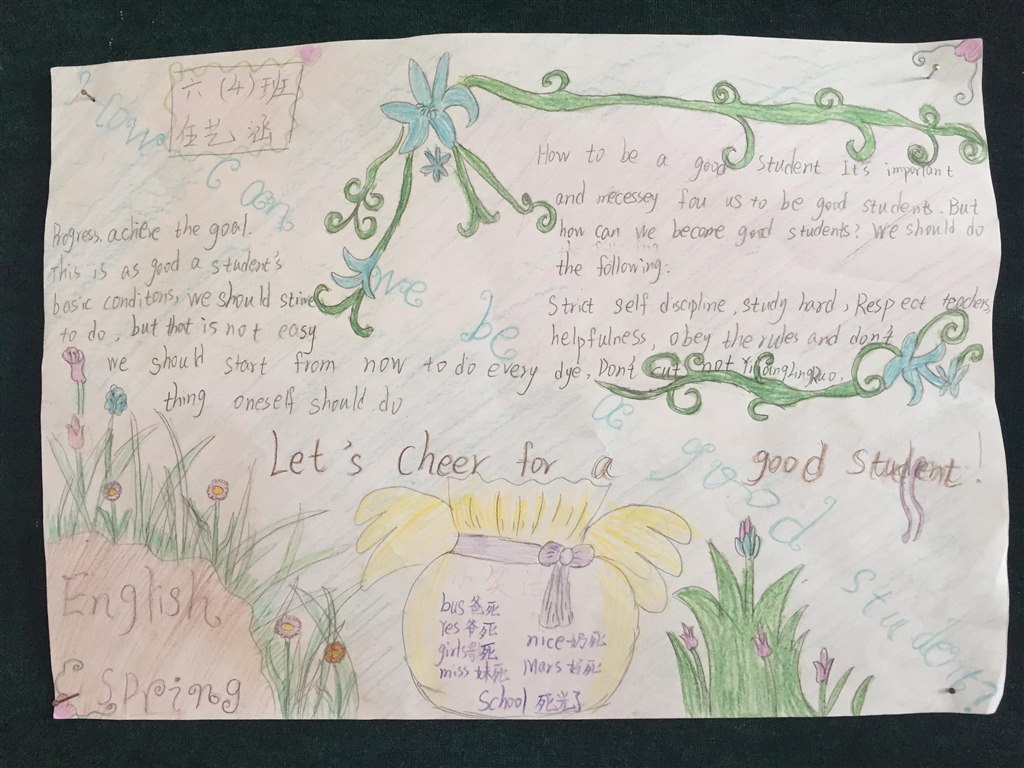 六(4)班
任艺涵
How can we be a good student?
How to be a good student It's important
and mecessey fou us to be good students. But
how can we become good students? We should do
the following:
Strict self discipline, study hard, Respect teachers,
helpfulness, obey the rules and don't
Don't cut not
Progress. achieve the goal.
This is as good a student's
basic conditons, we should strive
to do, but that is not easy
we should start from now to do every dye,
thing oneself should do
Let's cheer for a good student!
English
Spring
bus 爸死
Yes 爷死
girls 哥死
miss 妹死
nice 奶死
Mars 妈死
School 死光了